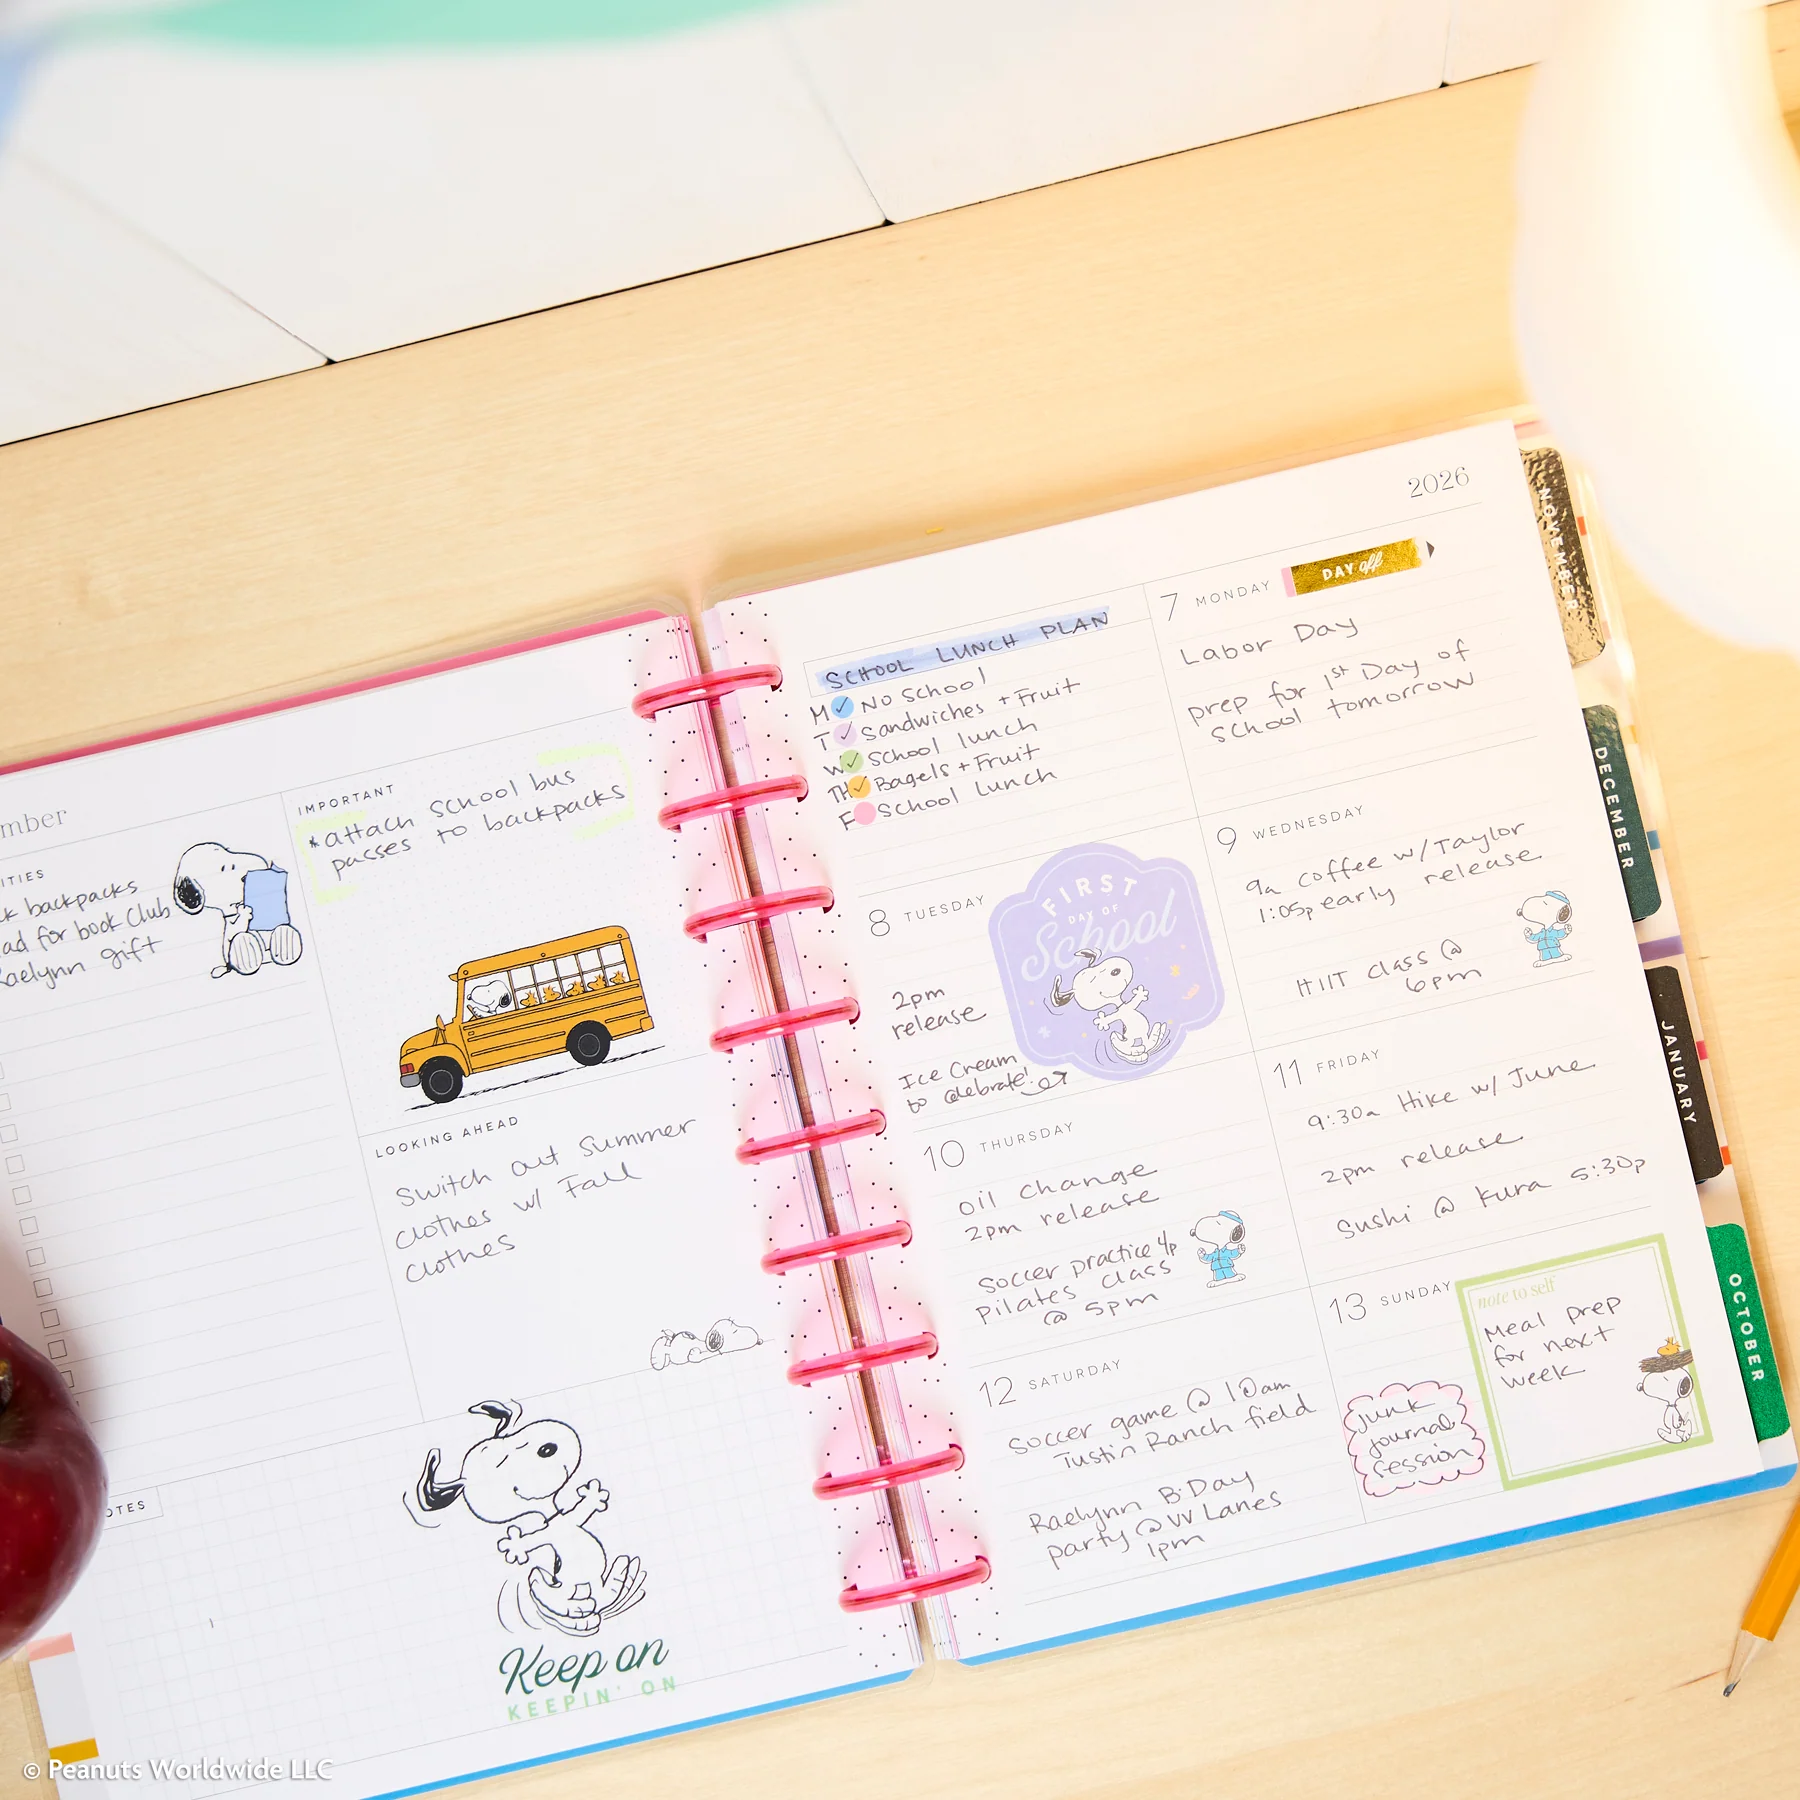 mber
ITIES
ck backpacks
ad for book Club
Raelynn gift
IMPORTANT
*attach school bus
passes to backpacks
LOOKING AHEAD
Switch out summer
clothes w/ Fall
clothes
OTES
Keep on
KEEPIN' ON
2026
SCHOOL LUNCH PLAN
M NO SCHOOL
T Sandwiches + Fruit
W School lunch
TH Bagels + Fruit
F School lunch
7 MONDAY DAY off
Labor Day
prep for 1st Day of
school tomorrow
8 TUESDAY
FIRST
DAY OF
School
2pm
release
Ice Cream
to celebrate!
9 WEDNESDAY
9a coffee w/Taylor
1:05p early release
HIIT class @
6pm
10 THURSDAY
oil change
2pm release
Soccer practice 4p
pilates class
@ 5pm
11 FRIDAY
9:30a Hike w/ June
2pm release
Sushi @ Kura 5:30p
12 SATURDAY
Soccer game @ 10am
Tustin Ranch field
Raelynn B-Day
party @ VV Lanes
1pm
13 SUNDAY
junk
journal
session
note to self
Meal prep
for next
week
NOVEMBER
DECEMBER
JANUARY
OCTOBER
© Peanuts Worldwide LLC